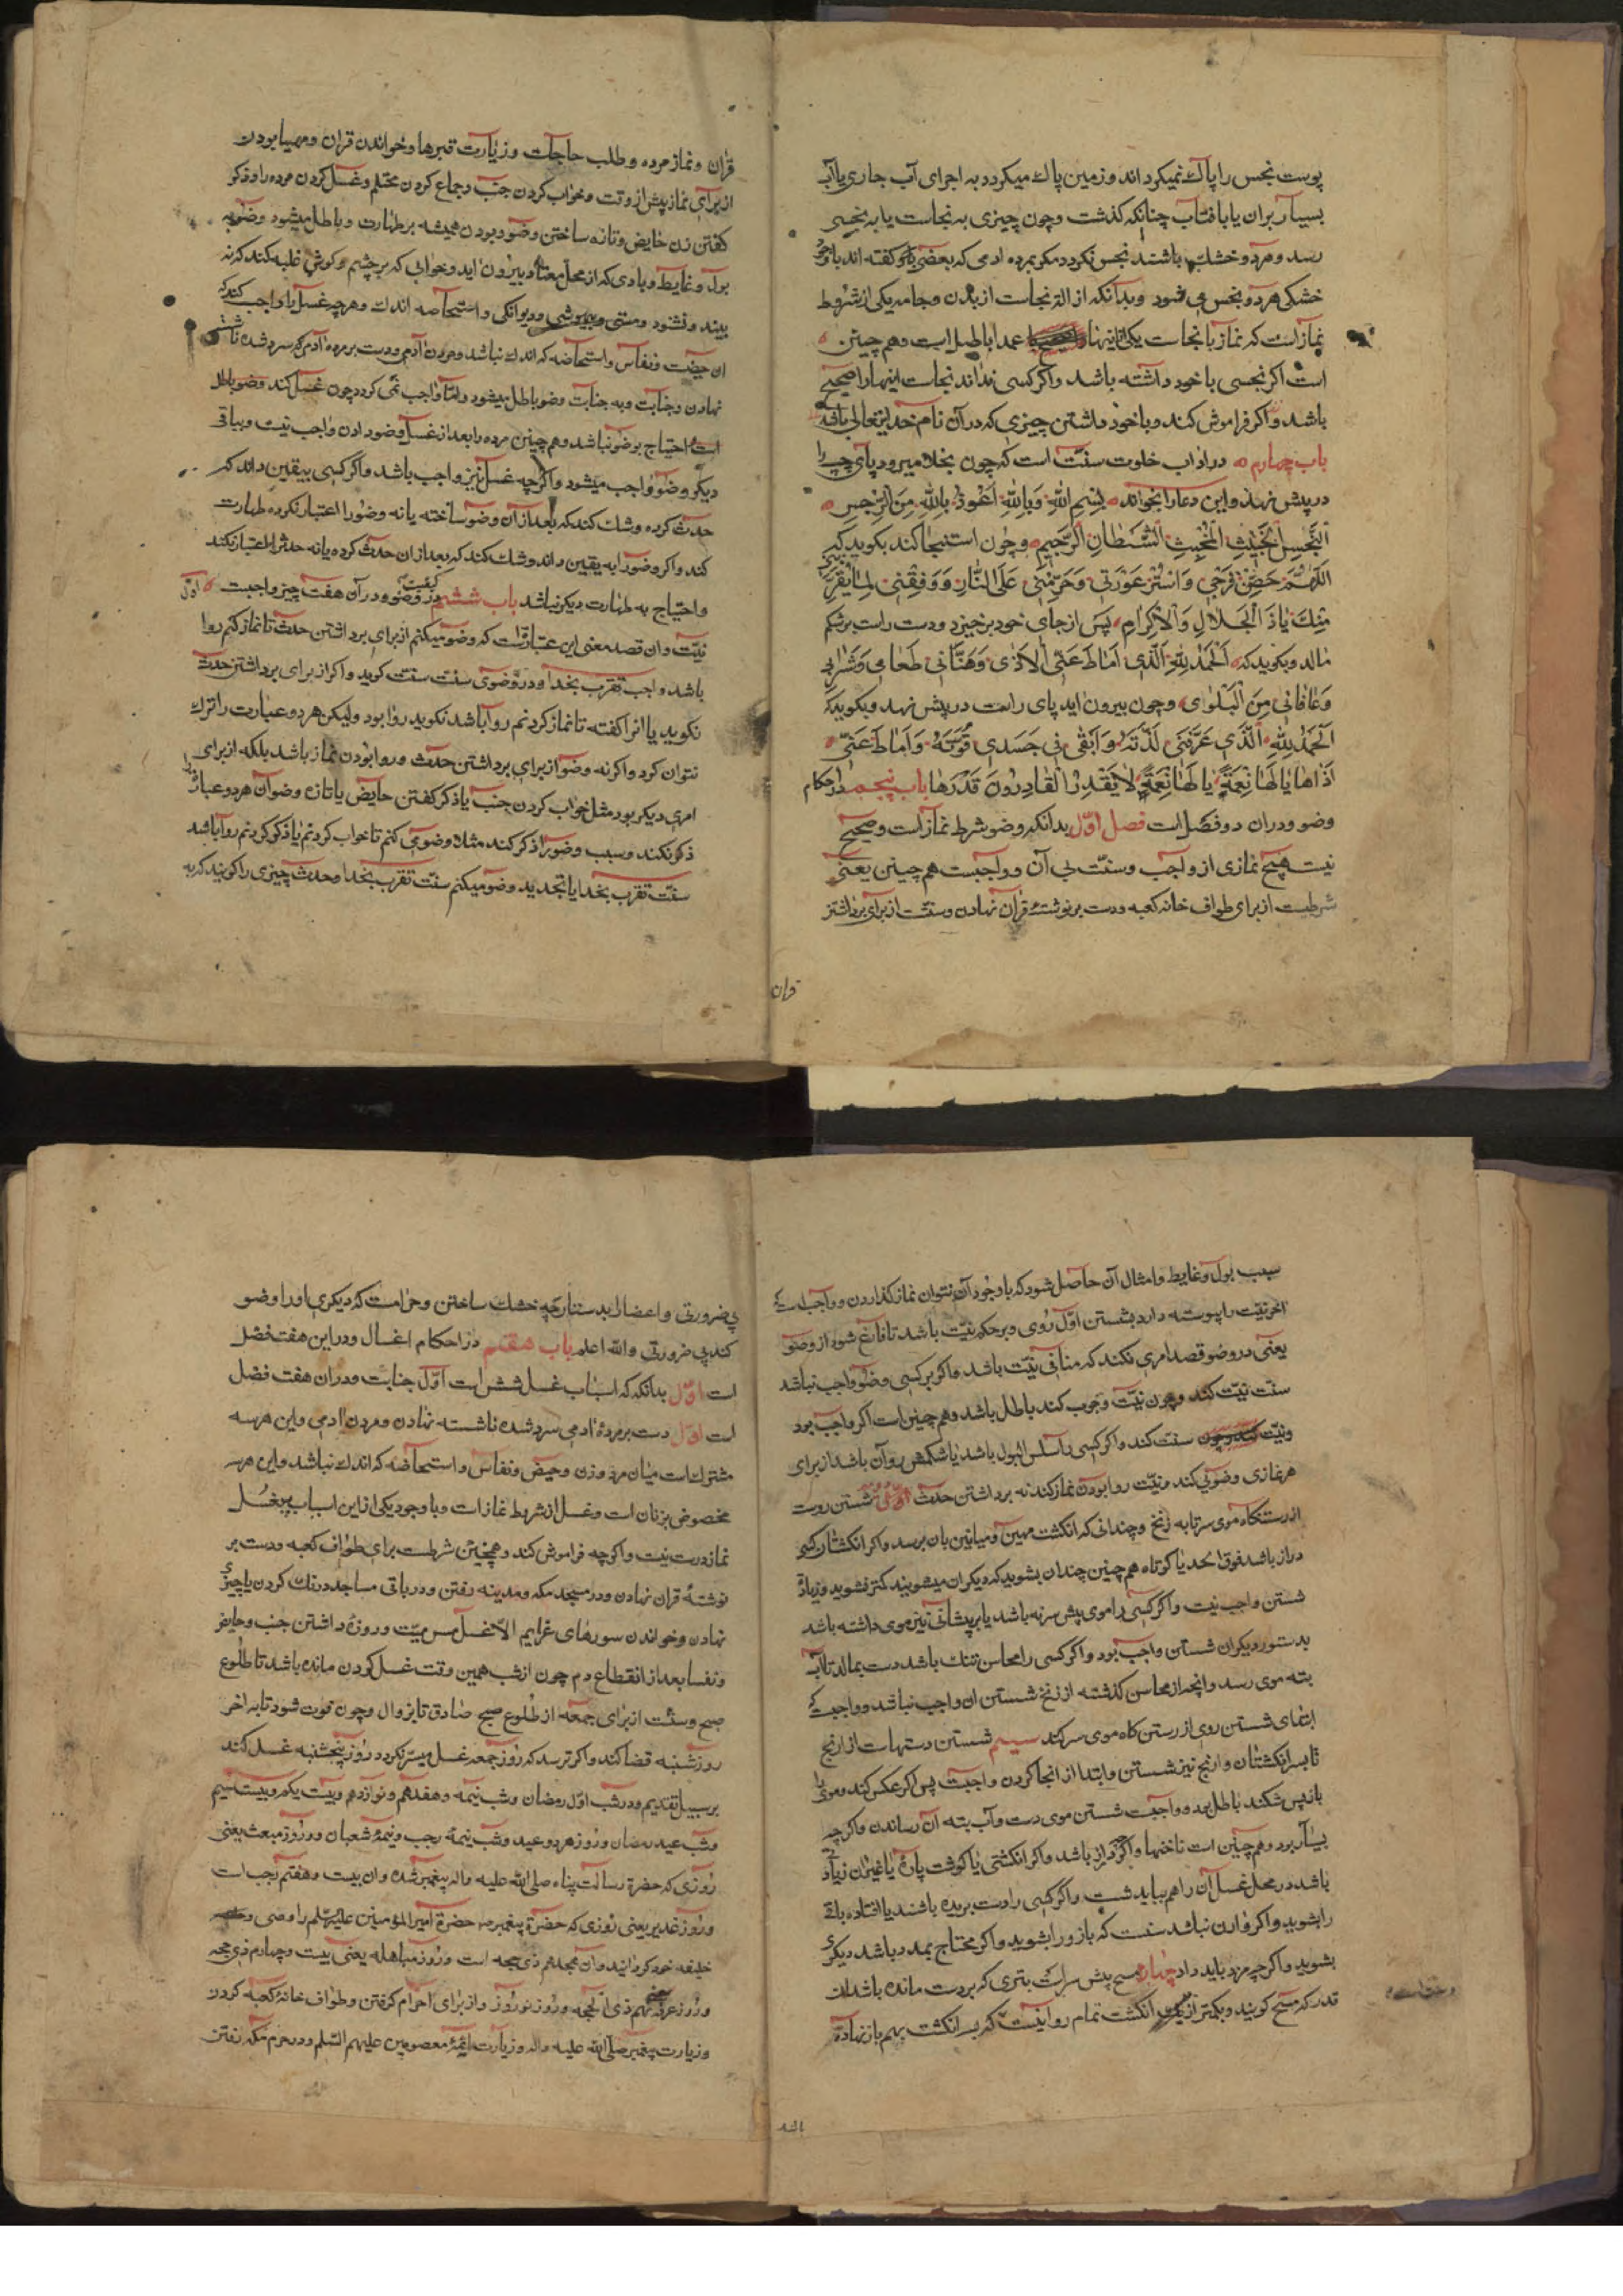 پوست نجس را پاک نمیکرداند و زمین پاک میکردد به اجرای آب جاری یا آب
بسیار بران یا بافتاب چنانکه کذشت و چون چیزی به نجاست یا به نجسی
رسد و هردو خشک باشند نجس نکردد مکر بمرده ادمی که بعضی کفته اند با وجود
خشکی هردو نجس می شود و بدآنکه ازاله نجاست از بدن و جامه یکی از شروط
نماز است که نماز با نجاست یکی از اینها عمدا باطل است و هم چنین
است اکر نجسی با خود داشته باشد و اکر کسی نداند نجاست اینها را صحیح
باشد و اکر فراموش کند و با خود داشتن چیزی که در آن نام خدایتعالی باشد
باب چهارم در اداب خلوت سنّت است که چون بخلا میرود پای چپ را
در پیش نهد و این دعا را بخواند بِسْمِ اللّهِ وَبِاللّهِ اَعُوذُ بِاللّهِ مِنَ الرِّجسِ
النَّجِسِ الخَبِیثِ المُخْبِثِ الشَّیْطانِ الرَّجِیمِ و چون استنجا کند بکوید که
اللّهُمَّ حَصِّنْ فَرْجِی وَاسْتُرْ عَوْرَتِی وَحَرِّمْنِی عَلَی النّارِ وَوَفِّقْنِی لِما یُقَرِّبُنِی
مِنْکَ یا ذَا الْجَلالِ وَالْاِکْرامِ پس از جای خود برخیزد و دست راست بر شکم
مالد و بکوید که اَلْحَمْدُ لِلّهِ الَّذِی اَماطَ عَنِّی الْاَذی وَهَنَّأَنِی طَعامِی وَشَرابِی
وَعافانِی مِنَ الْبَلْوی و چون بیرون اید پای راست در پیش نهد و بکوید که
اَلْحَمْدُ لِلّهِ الَّذِی عَرَّفَنِی لَذَّتَهُ وَاَبْقی فِی جَسَدِی قُوَّتَهُ وَاَماطَ عَنِّی
اَذاها یا لَها نِعْمَةً یا لَها نِعْمَةً لا یَقْدِرُ الْقادِرُونَ قَدْرَها باب پنجم در احکام
وضو و دران دو فصل است فصل اوّل بدانکه وضو شرط نماز است و صحیح
نیست هیچ نمازی از واجب و سنّت بی آن و واجبست هم چنین یعنی
شرطیست از برای طواف خانه کعبه و دست بر نوشتهٔ قرآن نهادن و سنّت از برای برداشتن
قران
قران و نماز مرده و طلب حاجات و زیارت قبرها و خواندن قران و مهیا بودن
از برای نماز پیش از وقت و خواب کردن جنب و جماع کردن محتلم و غسل کردن مرده را و ذکر
کفتن زن حایض و تازه ساختن وضو و بودن همیشه بر طهارت و باطل میشود وضو به
بول و غایط و بادی که از محل معتاد بیرون اید و خوابی که بر چشم و کوش غلبه کند که نه
بیند و نشنود و مستی و بیهوشی و دیوانکی و استحاضه اندک و هرچه غسل را واجب کند که
ان حیض است و نفاس و استحاضه که اندک نباشد و مردن آدمی و دست بر مرده آدمی که سرد شده ناشسته
نهادن و جنابت و به جنابت وضو باطل میشود و امّا واجب نمی کردد چون غسل کند وضو باطل
است احتیاج بوضو نباشد و هم چنین مرده را بعد از غسل وضو دادن واجب نیست و بباقی
دیکر وضو واجب میشود و اکرچه غسل نیز واجب باشد و اکر کسی بیقین داند که
حدث کرده و شک کند که بعد از ان وضو ساخته یا نه وضو را اعتبار نکرده طهارت
کند و اکر وضو را به یقین داند و شک کند که بعد از ان حدث کرده یا نه حدث را اعتبار نکند
و احتیاج به طهارت دیکر نباشد باب ششم در کیفیت وضو و در آن هفت چیز واجبست اوّل
نیّت و ان قصد معنی این عبارتست که وضو میکنم از برای برداشتن حدث تا نماز کنم روا
باشد واجب تقرب بخدا و در وضوی سنت سنت کوید و اکر از برای برداشتن حدث
نکوید یا انرا کفته تا نماز کردنم روا باشد نکوید روا بود و لیکن هردو عبارت را ترک
نتوان کرد و اکر نه وضو از برای برداشتن حدث و روا بودن نماز باشد بلکه از برای
امری دیکر بود مثل خواب کردن جنب یا ذکر کفتن حایض یا تازه وضو آن هردو عبارت را
ذکر نکند و سبب وضو را ذکر کند مثلا وضو می کنم تا خواب کردنم یا ذکر کردنم روا باشد
سنّت تقرب بخدا یا تجدید وضو میکنم سنّت تقرب بخدا و حدث چیزی را کویند که به
سبب بول و غایط و امثال آن حاصل شود که با وجود آن نتوان نماز کذاردن و واجب است که
اخر نیّت را پیوسته دارد بشستن اوّل روی و بر حکم نیّت باشد تا فارغ شود از وضو
یعنی در وضو قصد امری نکند که منافی نیّت باشد و اکر بر کسی وضو واجب نباشد
سنّت نیّت کند و چون نیّت وجوب کند باطل باشد و هم چنین است اکر واجب بود
و نیّت سنّت کند و اکر کسی را سلس البول باشد یا شکمش روان باشد از برای
هر نمازی وضوئی کند و نیّت روا بودن نماز کند نه برداشتن حدث دویّم شستن روست
از رستنکاه موی سر تا به زنخ و چندانی که انکشت مهین و میانین بان برسد و اکر انکشتان کسی
دراز باشد فوق الحد یا کوتاه هم چنین چندان بشوید که دیکران میشویند کمتر نشوید و زیادة
شستن واجب نیست و اکر کسی را موی پیش سر نه باشد یا بر پیشانی نیز موی داشته باشد
بدستور دیکران شستن واجب بود و اکر کسی را محاسن تنک باشد دست بمالد تا آب
بته موی رسد و انچه از محاسن کذشته از زنخ شستن ان واجب نباشد و واجبست که
ابتدای شستن روی از رستن کاه موی سر کند سیم شستن دستهاست از ارنج
تا بسر انکشتان و ارنج نیز شستن و ابتدا از انجا کردن واجبست پس اکر عکس کند و موی را
باز پس شکند باطل بود و واجبست شستن موی دست و آب بته ان رساندن و اکرچه
بسیار بود و هم چنین است ناخنها و اکرچه دراز باشد و اکر انکشتی یا کوشت پارهٔ یا غیر ان زیادتی
باشد در محل غسل آن را هم بباید شست و اکر کسی را دست بریده باشند یا افتاده باقی
را بشوید و اکر را ان نباشد سنت که بازو را بشوید و اکر محتاج بمدد باشد دیکری
بشوید و اکرچه مزد باید داد چهارم مسح پیش سر است بتری که بر دست مانده باشد ان
قدر که مسح کویند و بکمتر از یک انکشت تمام روا نیست که سر انکشت بهم باز نهاده
باشد
بی ضرورتی و اعضا را بدستارچه خشک ساختن و حرامست که دیکری او را وضو
کند بی ضرورتی و الله اعلم باب هفتم در احکام اغسال و در این هفت فصل
است اوّل بدانکه که اسباب غسل شش است اوّل جنابت و دران هفت فصل
است اوّل دست بر مردهٔ ادمی سرد شده ناشسته نهادن و مردن ادمی و این هر سه
مشترک است میان مرد و زن و حیض و نفاس و استحاضه که اندک نباشد و این هر سه
مخصوص بزنان است و غسل از شرایط نماز است و با وجود یکی از این اسباب بی غسل
نماز درست نیست و اکرچه فراموش کند و همچنین شرطست برای طواف کعبه و دست بر
نوشتهٔ قران نهادن و در مسجد مکه و مدینه رفتن و در باقی مساجد درنک کردن یا چیزی
نهادن و خواندن سورهای عزایم الّا غسل مس میّت و روزه داشتن جنب و حایض
و نفسا بعد از انقطاع دم چون از شب همین وقت غسل کردن مانده باشد تا طلوع
صبح و سنّت از برای جمعه از طلوع صبح صادق تا بزوال و چون فوت شود تا به اخر
روز شنبه قضا کند و اکر ترسد که روز جمعه غسل میسّر نکردد روز پنجشنبه غسل کند
بر سبیل تقدیم و در شب اوّل رمضان و شب نیمه و هفدهم و نوازدهم و بیست یکم و بیست سیم
و شب عید رمضان و روز هردو عید و شب نیمهٔ رجب و نیمهٔ شعبان و روز مبعث یعنی
روزی که حضرة رسالت پناه صلی الله علیه و اله پیغمبر شده و ان بیست و هفتم رجب است
و روز غدیر یعنی روزی که حضرة پیغمبر حضرة امیر المؤمنین علیه السّلم را وصی و
خلیفه خود کردانید و ان هجدهم ذی حجه است و روز مباهله یعنی بیست و چهارم ذی حجه
و روز عرفه یعنی نهم ذی الحجّه و روز نوروز و از برای احرام کرفتن و طواف خانهٔ کعبه کردن
و زیارت پیغمبر صلّی الله علیه و اله و زیارت ائمّهٔ معصومین علیهم السّلم و در حرم مکه رفتن